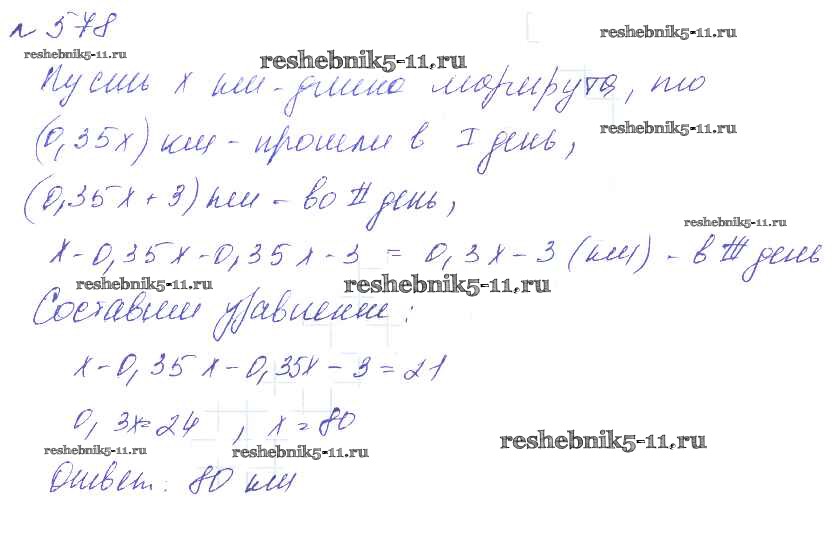 № 578
reshebnik5-11.ru
reshebnik5-11.ru
reshebnik5-11.ru
Пусть x км - длина маршрута, то
(0,35x) км - прошли в I день,
reshebnik5-11.ru
(0,35x + 3) км - во II день,
reshebnik5-11.ru
x - 0,35x - 0,35x - 3 = 0,3x - 3 (км) - в III день
reshebnik5-11.ru
reshebnik5-11.ru
Составим уравнение:
x - 0,35x - 0,35x - 3 = 21
0,3x = 24 , x = 80
reshebnik5-11.ru
reshebnik5-11.ru
reshebnik5-11.ru
Ответ: 80 км